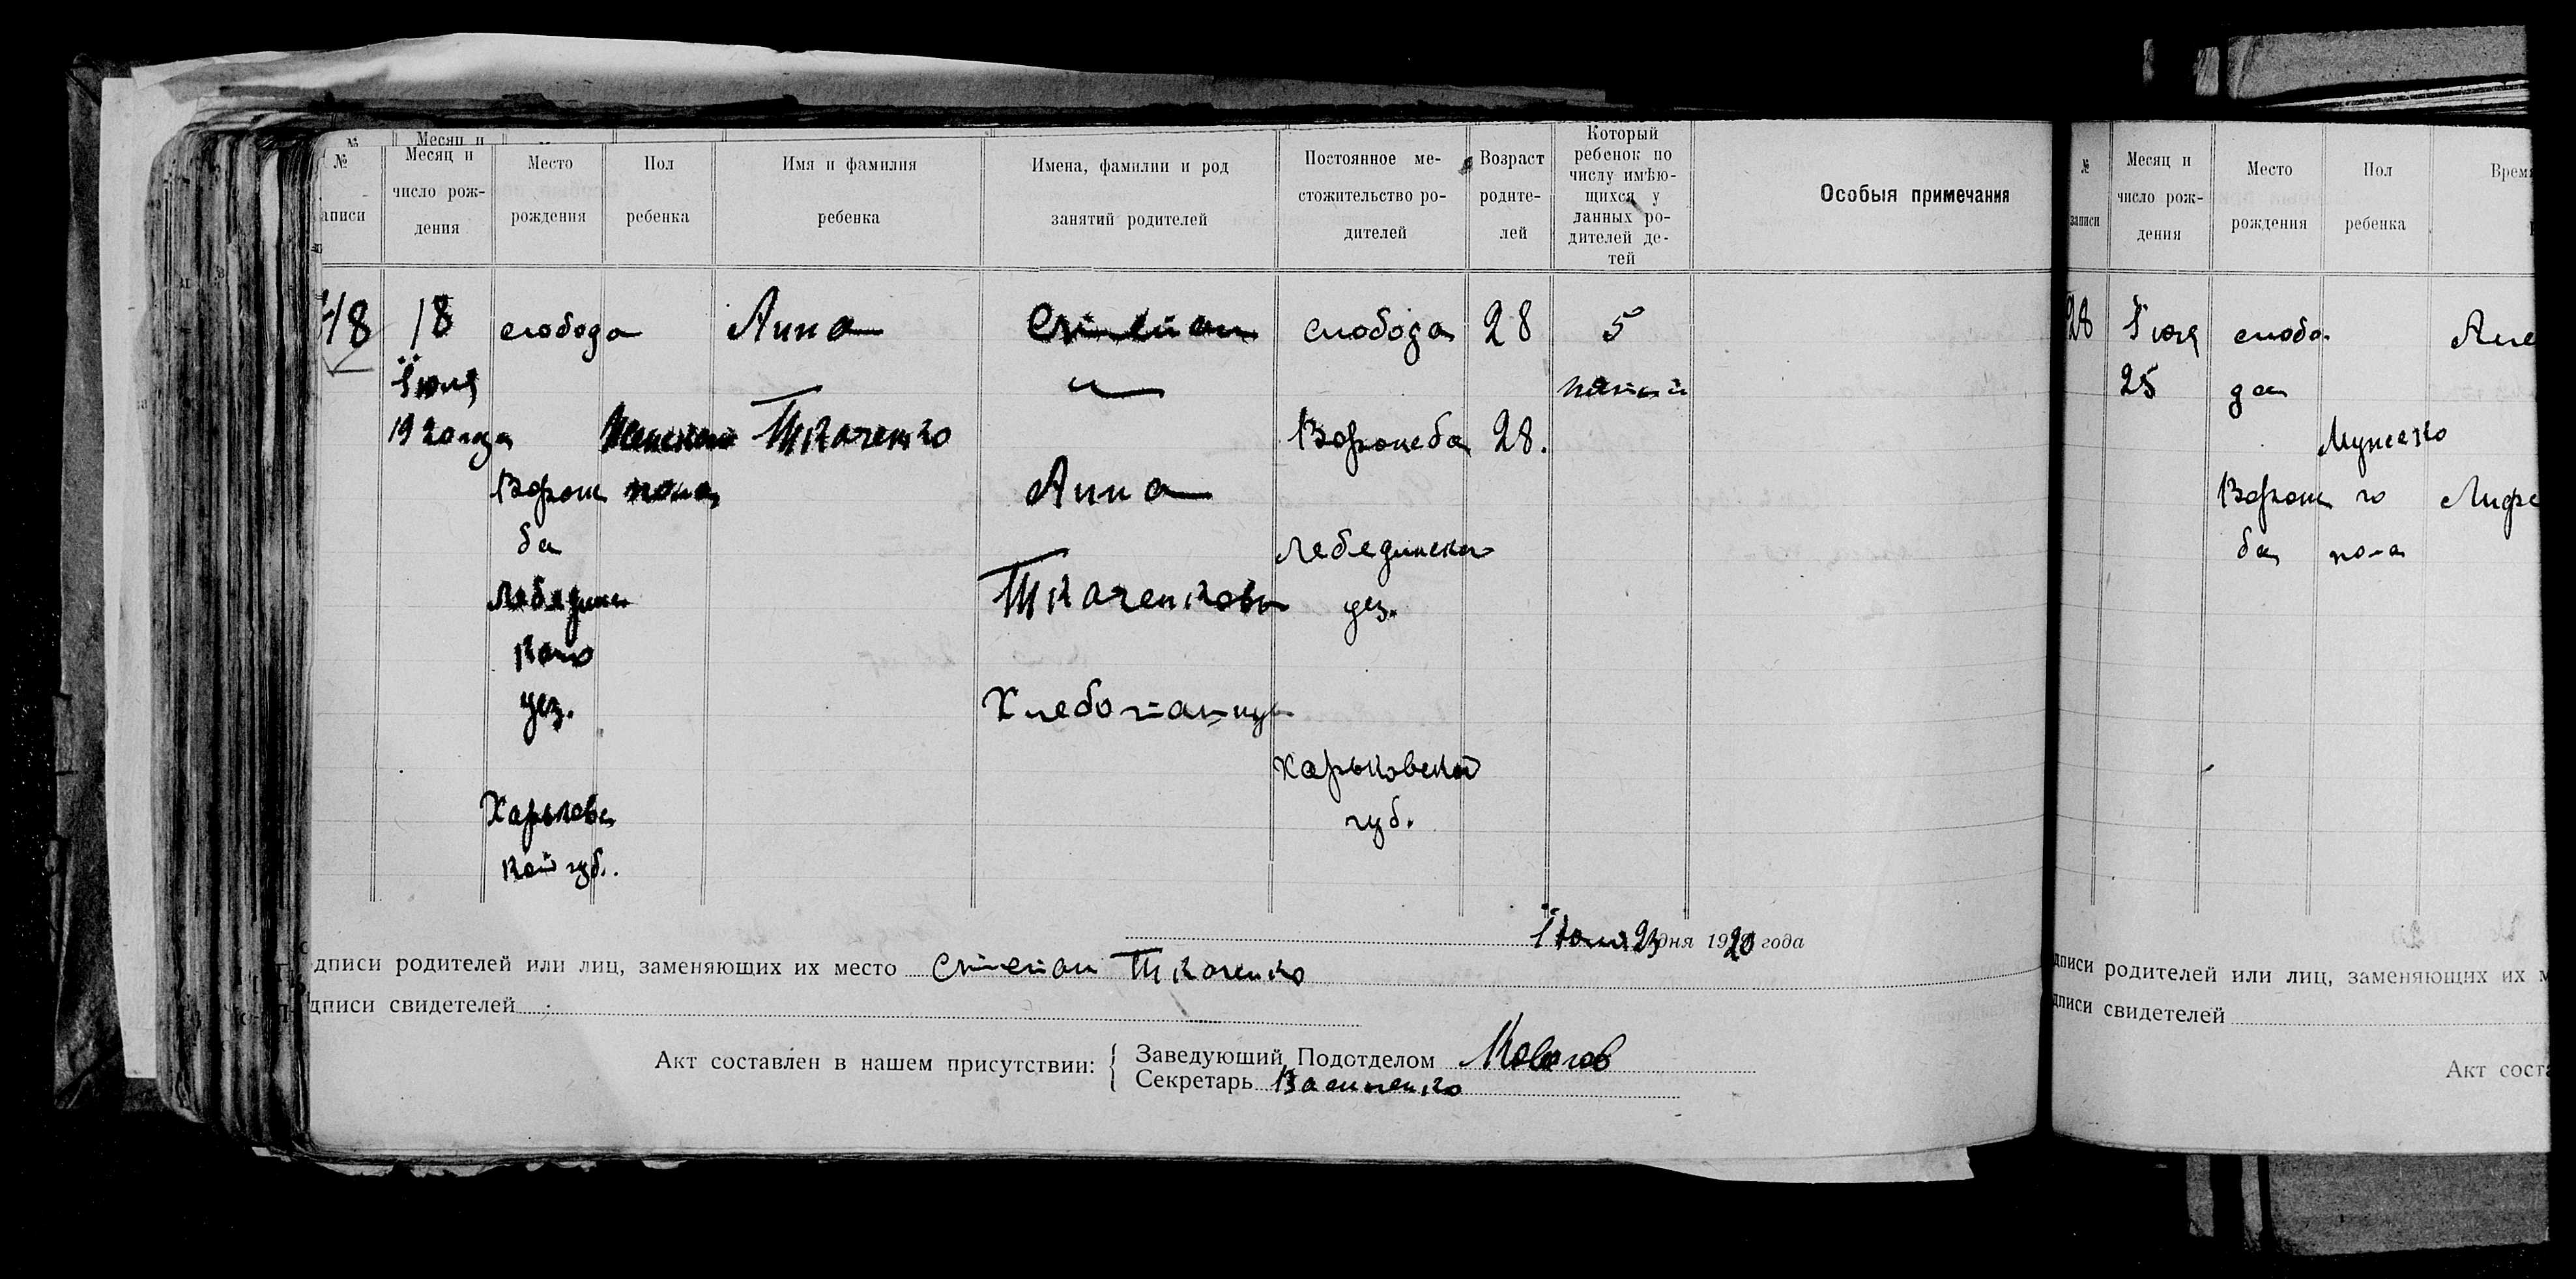 № аписи
Месяц и число рождения
Место рождения
Пол ребенка
Имя и фамилия ребенка
Имена, фамилии и род занятий родителей
Постоянное местожительство родителей
Возраст родителей
Который ребенок по числу имѣющихся у данных родителей детей
Особыя примечания
18
Июля
1920 года
слобода
Ворож
ба
Лебединс
каго
уез.
Харьковс
кой губ.
Женскаго
пола
Анна
Ткаченко
Степан
и
Анна
Ткаченковы
Хлебопашцы
слобода
Ворожеба
Лебединска
уез.
Харьковской
губ.
28
28.
5
пятый
Июля 23 дня 1920 года
дписи родителей или лиц, заменяющих их место Степан Ткаченко
дписи свидетелей
Акт составлен в нашем присутствии:
Заведующий Подотделом
Секретарь Василенко
№ записи
Месяц и число рождения
Место рождения
Пол ребенка
Время
28
Июля
25
слобо
да
Ворож
ба
Мужско
го
пола
дписи родителей или лиц, заменяющих их м
дписи свидетелей
Акт соста